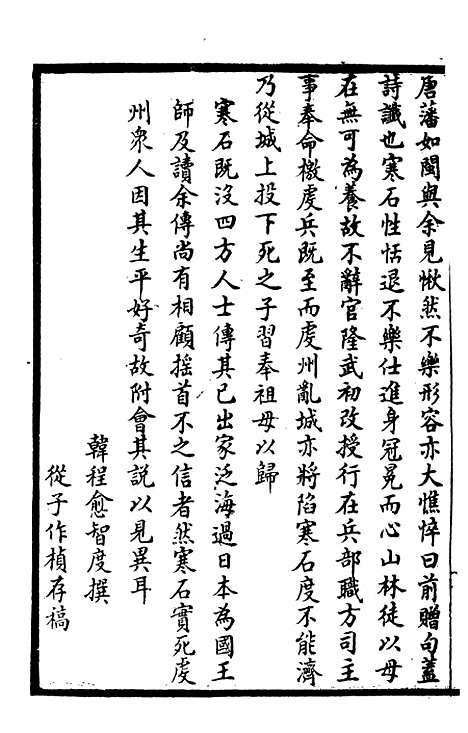 唐藩如閩與余見愀然不樂形容亦大憔悴曰前贈句蓋
詩讖也寒石性恬退不樂仕進身冠冕而心山林徒以母
在無可為養故不辭官隆武初改授行在兵部職方司主
事奉命檄虔兵既至而虔州亂城亦將陷寒石度不能濟
乃從城上投下死之子習奉祖母以歸
寒石既沒四方人士傳其已出家泛海過日本為國王
師及讀余傳尚有相顧搖首不之信者然寒石實死虔
州眾人因其生平好奇故附會其說以見異耳
韓程愈智度撰
從子作楨存稿